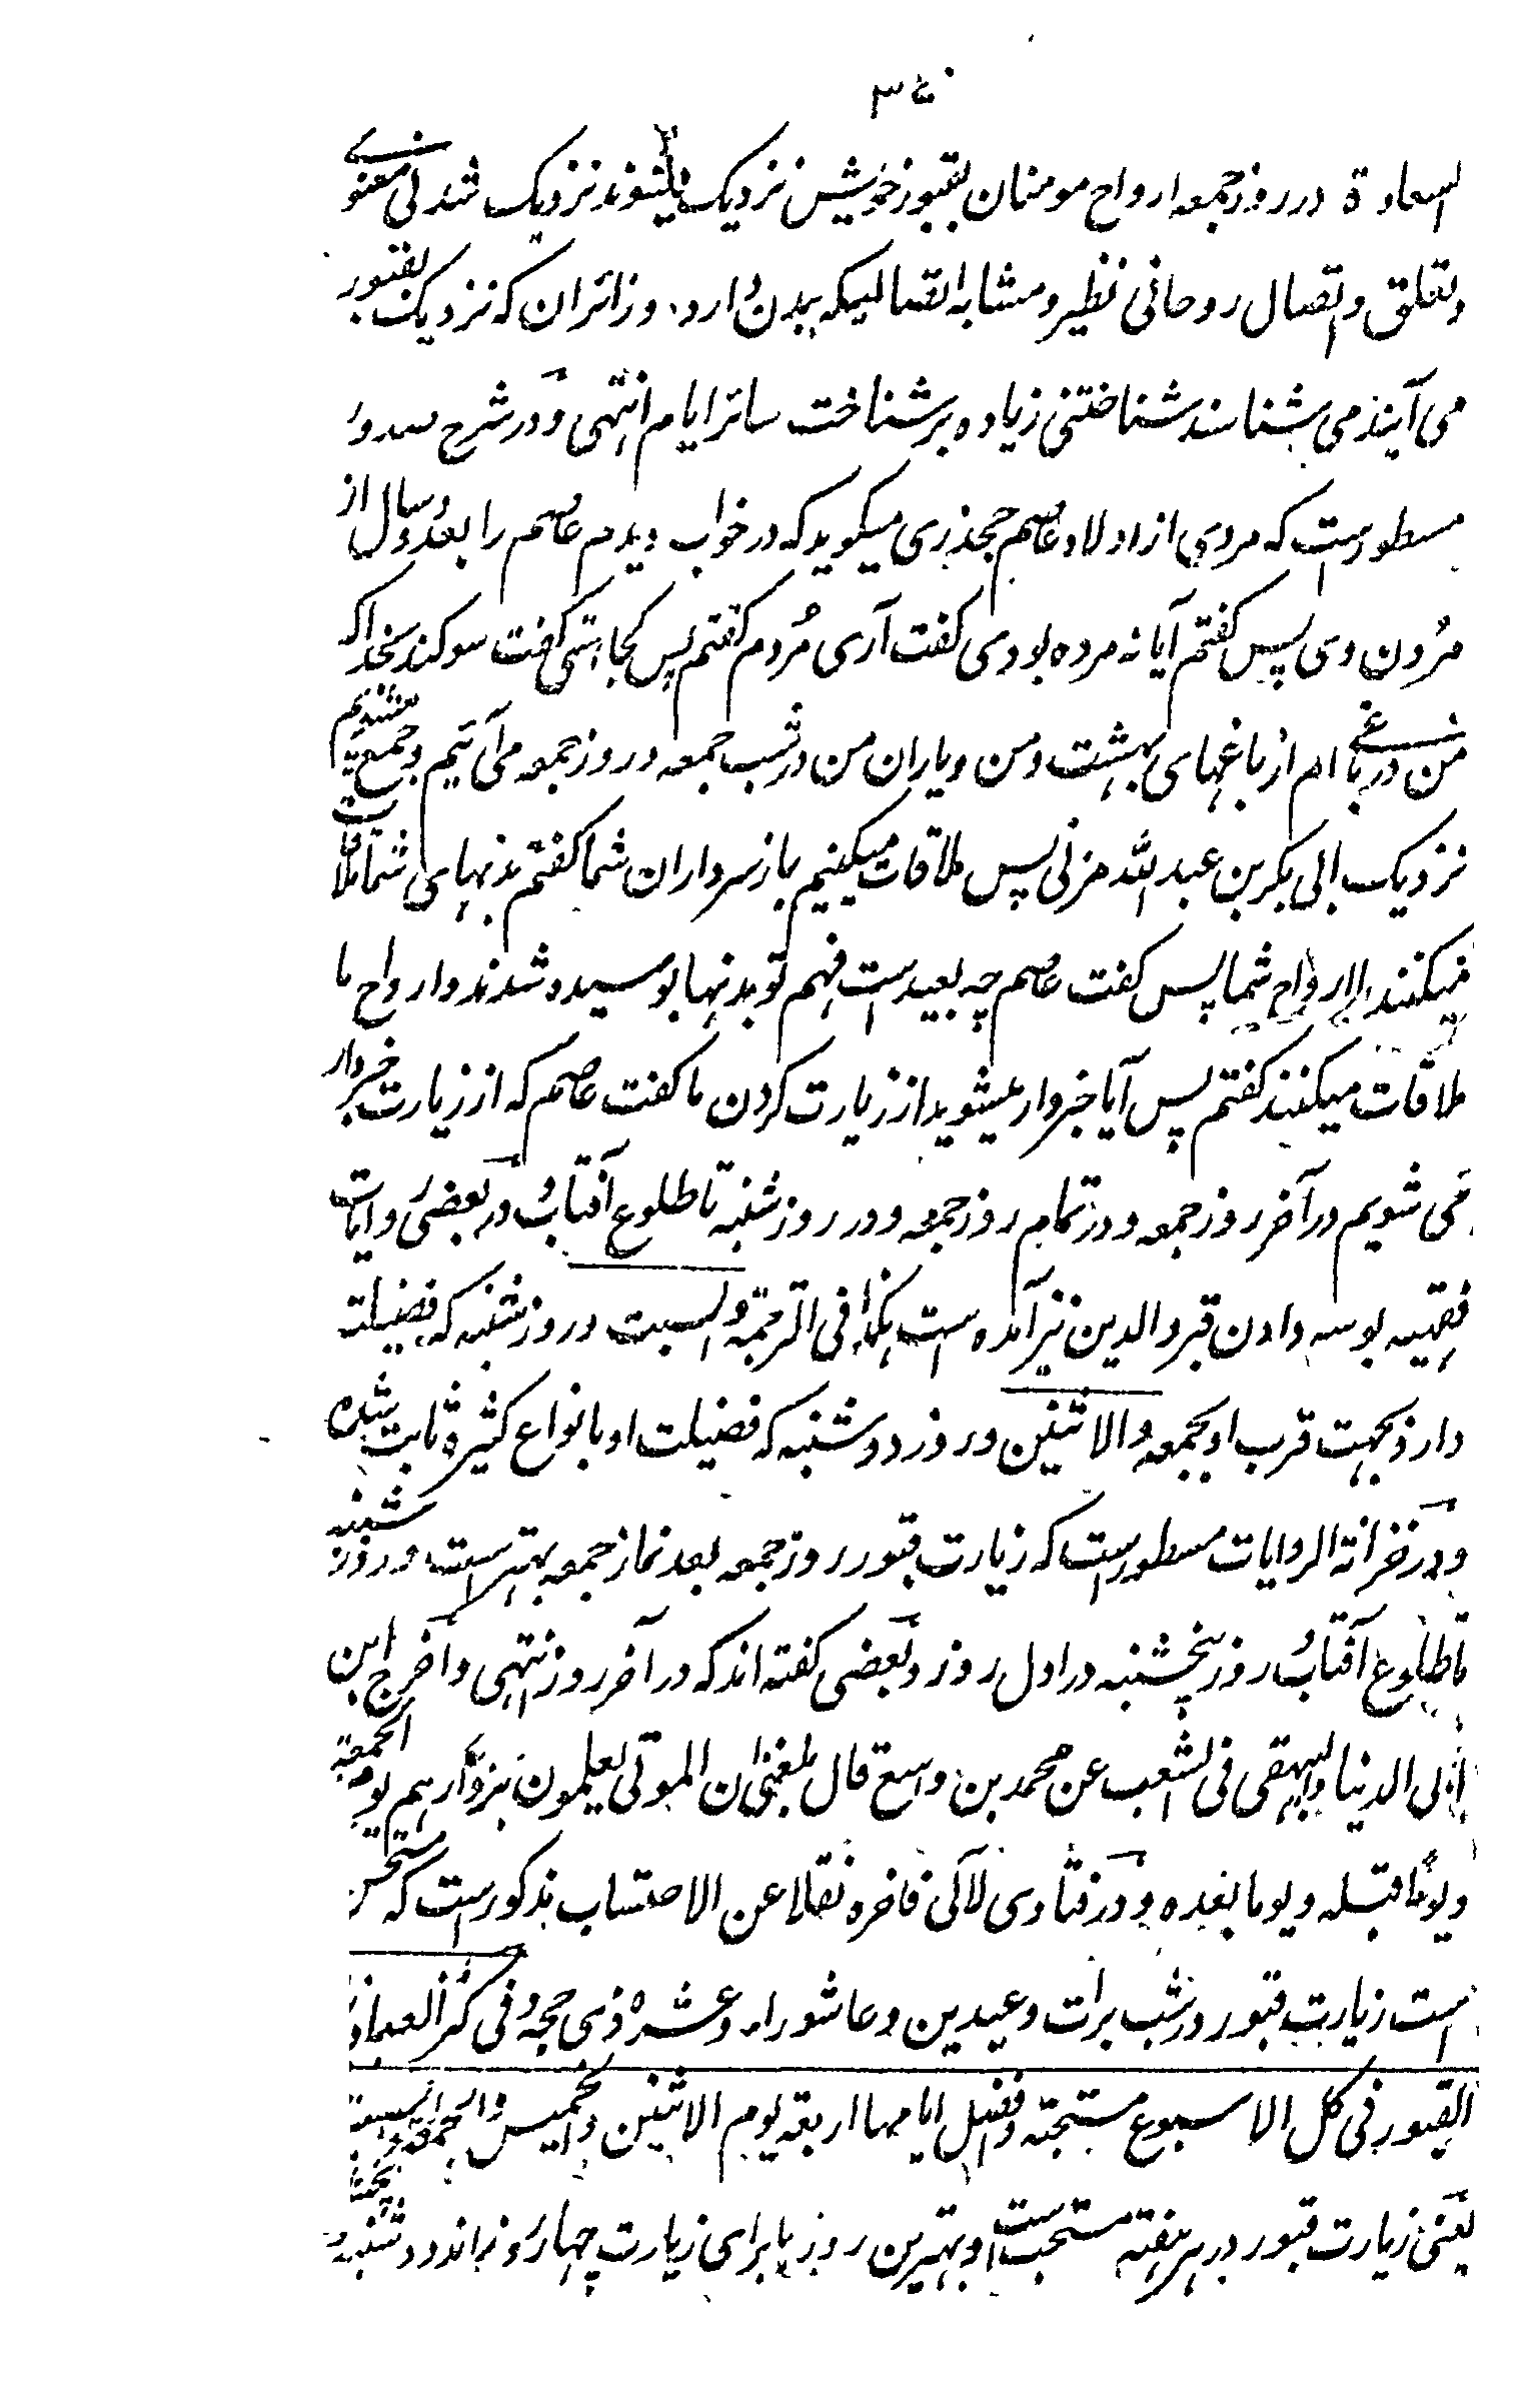 ۳٤۰
السعادة در روز جمعه ارواح مومنان بقبور خویش نزدیک میشوند نزدیک شدنی معنوے
و تعلق و اتصال روحانی نظیر و مشابه اتصالیکه ببدن دارد و زائران که نزدیک بقبور
می آیند می شناسند شناختنی زیاده بر شناخت سائر ایام انتهی و در شرح صدور
مسطورست که مردی از اولاد عاصم جحذری میگوید که در خواب دیدم عاصم را بعد دو سال از
مردن وی پس گفتم آیا نه مرده بودی گفت آری مردم گفتم پس کجا هستی گفت سوگند بخدا که
من در باغے ام از باغهای بهشت و من و یاران من در شب جمعه و روز جمعه می آئیم و جمع میشویم
نزدیک ابی بکر بن عبد الله مزنی پس ملاقات میکنیم باز سرداران شما گفتم بدنهای شما ملاقات
میکنند یا ارواح شما پس گفت عاصم چه بعیدست فهم تو بدنها بوسیده شدند و ارواح ما
ملاقات میکنند گفتم پس آیا خبردار میشوید از زیارت کردن ما گفت عاصم که از زیارت خبردار
می شویم در آخر روز جمعه و در تمام روز جمعه و در روز شنبه تا طلوع آفتاب و در بعضی روایات
فقهیه بوسه دادن قبر والدین نیز آمده است هکذا فی الترجمة والسبت در روز شنبه که فضیلت
دارد بجهت قرب او بجمعه والاثنین و روز دوشنبه که فضیلت او بانواع کثیره ثابت شده
و در خزانة الروایات مسطورست که زیارت قبور روز جمعه بعد نماز جمعه بهترست و روز شنبه
تا طلوع آفتاب و روز پنجشنبه در اول روز و بعضی گفته اند که در آخر روز انتهی و اخرج ابن
ابی الدنیا والبیهقی فی الشعب عن محمد بن واسع قال بلغنی ان الموتی یعلمون بزوارهم یوم الجمعة
و یوما قبله و یوما بعده و در فتاوی لآلی فاخره نقلا عن الاحتساب مذکورست که مستحسن
است زیارت قبور در شب برات و عیدین و عاشوراء و عشره ذی حجه و فی کنز العباد
القبور فی کل الاسبوع مستحبة و افضل ایامها اربعة یوم الاثنین والخمیس والجمعة والسبت
یعنی زیارت قبور در هر هفته مستحب ست و بهترین روزها برای زیارت چهار روز اند دوشنبه و پنجشنبه